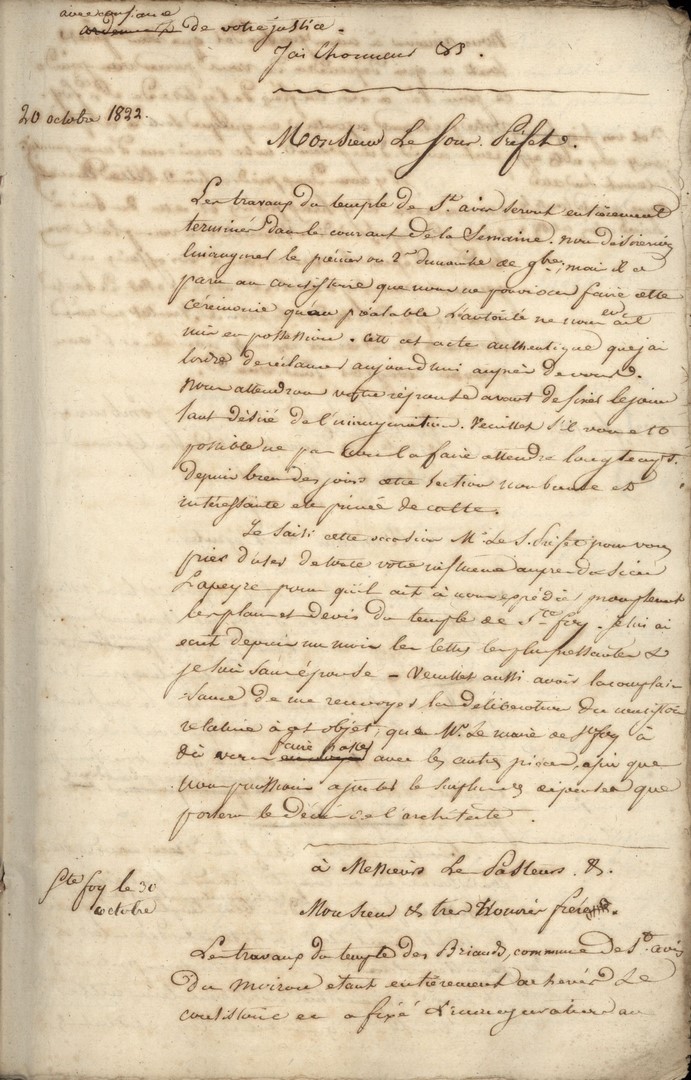 avec confiance
de votre justice.
J'ai l'honneur &s.
20 octobre 1822.
Monsieur Le Sous. Préfet.
Les travaux du temple de St. avis seront entièrement
terminés dans le courant de la Semaine. nous désirerions
l'inaugurer le premier ou 2me dimanche de 9bre; mais il a
paru au consistoire que nous ne pouvions faire cette
cérémonie qu'au préalable l'autorité ne nous en ait
mis en possession. C'est cet acte authentique que j'ai
l'ordre de réclamer aujourd'hui auprès de vous.
Nous attendrons votre réponse avant de fixer le jour
tant désiré de l'inauguration. Veuillez s'il vous est
possible ne pas nous la faire attendre longtemps.
depuis bien des jours cette section nombreuse et
intéressante est privée de culte.
Je saisi cette occasion Mr. Le S. Préfet pour vous
prier d'user de toute votre influence auprès du Sieur
Lapeyre pour qu'il ait à nous expédier promptement
les plans et devis du temple de Ste foy. Je lui ai
écrit depuis un mois les lettres les plus pressantes &
je suis sans réponse - Veuillez aussi avoir la complai-
sance de me renvoyer la délibération du consistoire
relative à cet objet, que Mr. Le maire de Ste foy a
dû vous faire passer avec les autres pièces, afin que
nous puissions ajuster le surplus des dépenses que
portera le devis de l'architecte.
à Messieurs Les Pasteurs. &.
Ste foy le 30
octobre
Monsieur & très Honoré frère.
Les travaux du temple des Briauds, commune de St. avis
du moiron etant entièrement achevés Le
consistoire en a fixé l'inauguration au